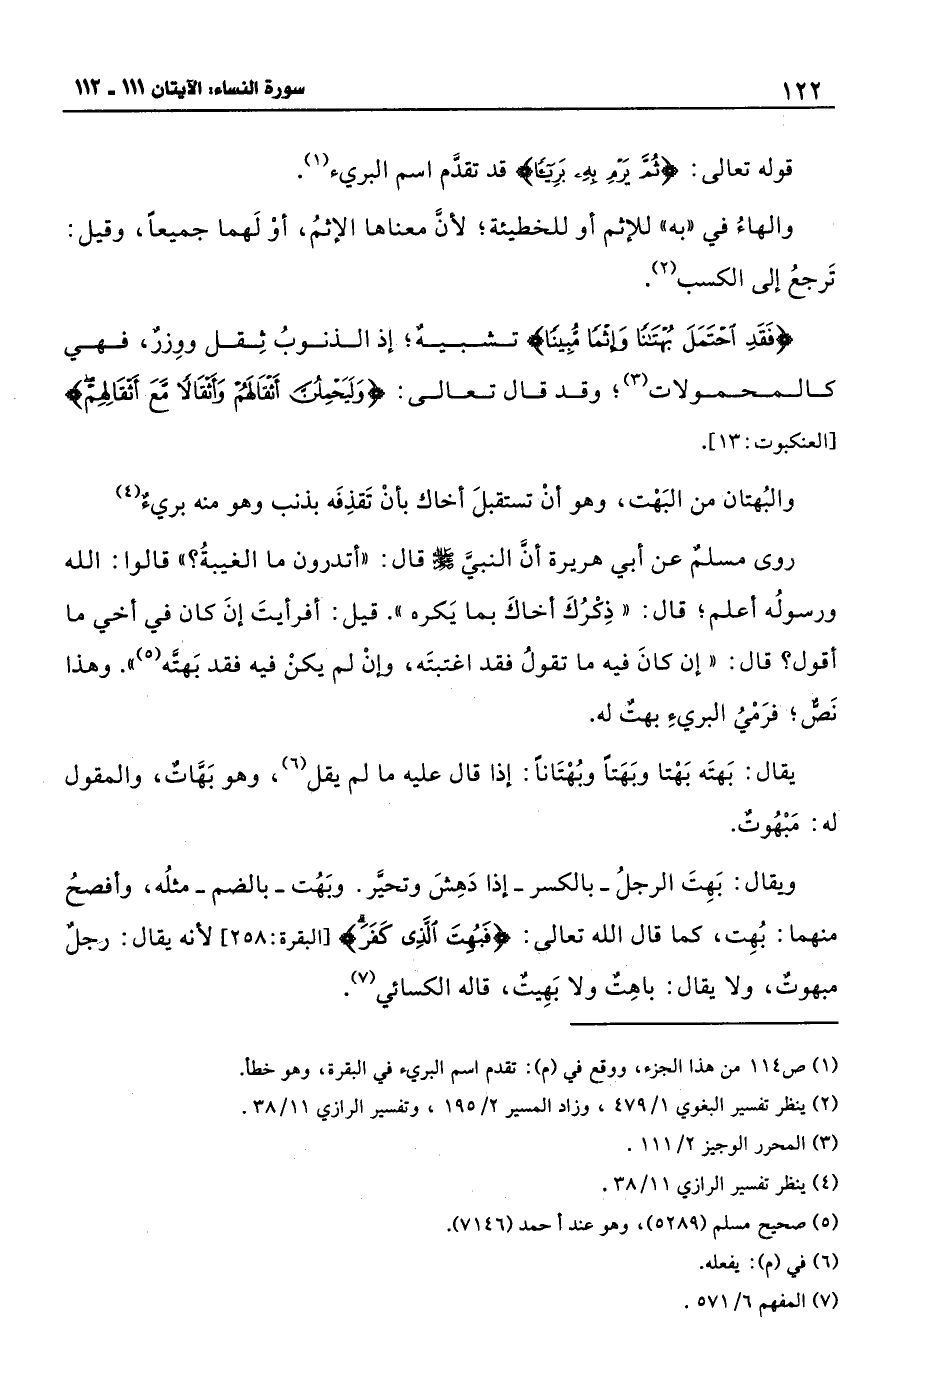 ١٢٢
سورة النساء: الآيتان ١١١ - ١١٢
قوله تعالى: ﴿ثُمَّ يَرْمِ بِهِۦ بَرِيٓـًٔا﴾ قد تقدَّم اسم البريء(١).
والهاءُ في «به» للإثم أو للخطيئة؛ لأنَّ معناها الإثمُ، أوْ لَهما جميعاً، وقيل:
تَرجعُ إلى الكسب(٢).
﴿فَقَدِ ٱحْتَمَلَ بُهْتَـٰنًا وَإِثْمًا مُّبِينًا﴾ تشبيهٌ؛ إذ الذنوبُ ثِقل ووِزرٌ، فهي
كالمحمولات(٣)؛ وقد قال تعالى: ﴿وَلَيَحْمِلُنَّ أَثْقَالَهُمْ وَأَثْقَالًا مَّعَ أَثْقَالِهِمْ﴾
[العنكبوت: ١٣].
والبُهتان من البَهْت، وهو أنْ تستقبلَ أخاك بأنْ تَقذِفَه بذنب وهو منه بريءٌ(٤)
روى مسلمٌ عن أبي هريرة أنَّ النبيَّ ﷺ قال: «أتدرون ما الغيبةُ؟» قالوا: الله
ورسولُه أعلم؛ قال: « ذِكْرُكَ أخاكَ بما يَكره ». قيل: أفرأيتَ إنَ كان في أخي ما
أقول؟ قال: « إن كانَ فيه ما تقولُ فقد اغتبتَه، وإنْ لم يكنْ فيه فقد بَهتَّه(٥)». وهذا
نَصٌّ؛ فرَمْيُ البريءِ بهتٌ له.
يقال: بَهتَه بَهْتا وبَهَتاً وبُهْتَاناً: إذا قال عليه ما لم يقل(٦)، وهو بَهَّاتٌ، والمقول
له: مَبْهُوتٌ.
ويقال: بَهِتَ الرجلُ ـ بالكسر ـ إذا دَهِشَ وتحيَّر. وبَهُت ـ بالضم ـ مثلُه، وأفصحُ
منهما: بُهِت، كما قال الله تعالى: ﴿فَبُهِتَ ٱلَّذِى كَفَرَ﴾ [البقرة: ٢٥٨] لأنه يقال: رجلٌ
مبهوتٌ، ولا يقال: باهِتٌ ولا بَهِيتٌ، قاله الكسائي(٧).
(١) ص١١٤ من هذا الجزء، ووقع في (م): تقدم اسم البريء في البقرة، وهو خطأ.
(٢) ينظر تفسير البغوي ١/ ٤٧٩ ، وزاد المسير ٢/ ١٩٥ ، وتفسير الرازي ١١/ ٣٨ .
(٣) المحرر الوجيز ٢/ ١١١ .
(٤) ينظر تفسير الرازي ١١/ ٣٨ .
(٥) صحيح مسلم (٥٢٨٩)، وهو عند أحمد (٧١٤٦).
(٦) في (م): يفعله.
(٧) المفهم ٦/ ٥٧١ .